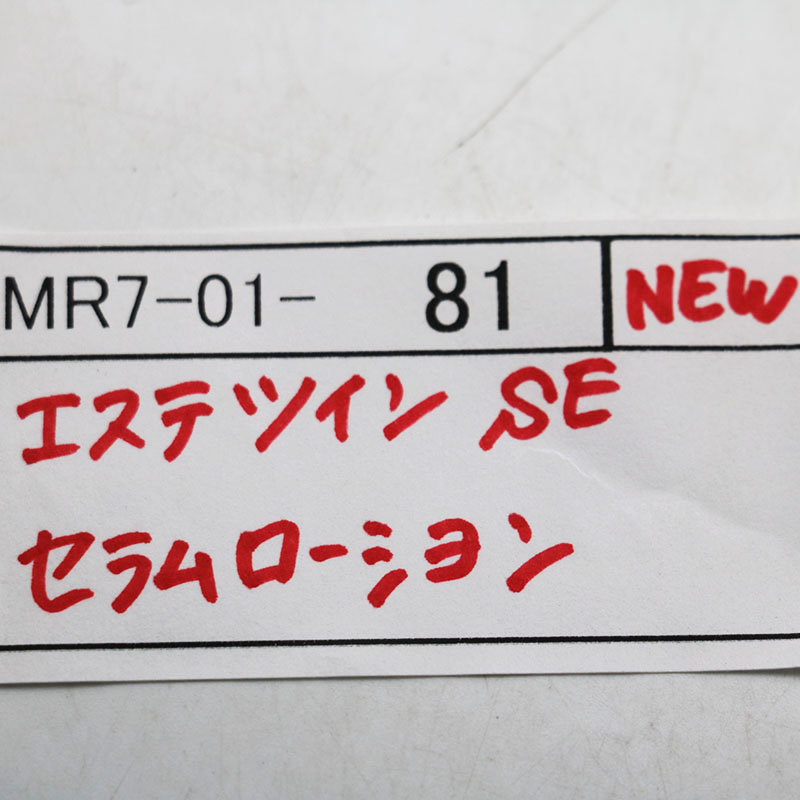 MR7-01- 81 NEW
エステツイン SE
セラムローション